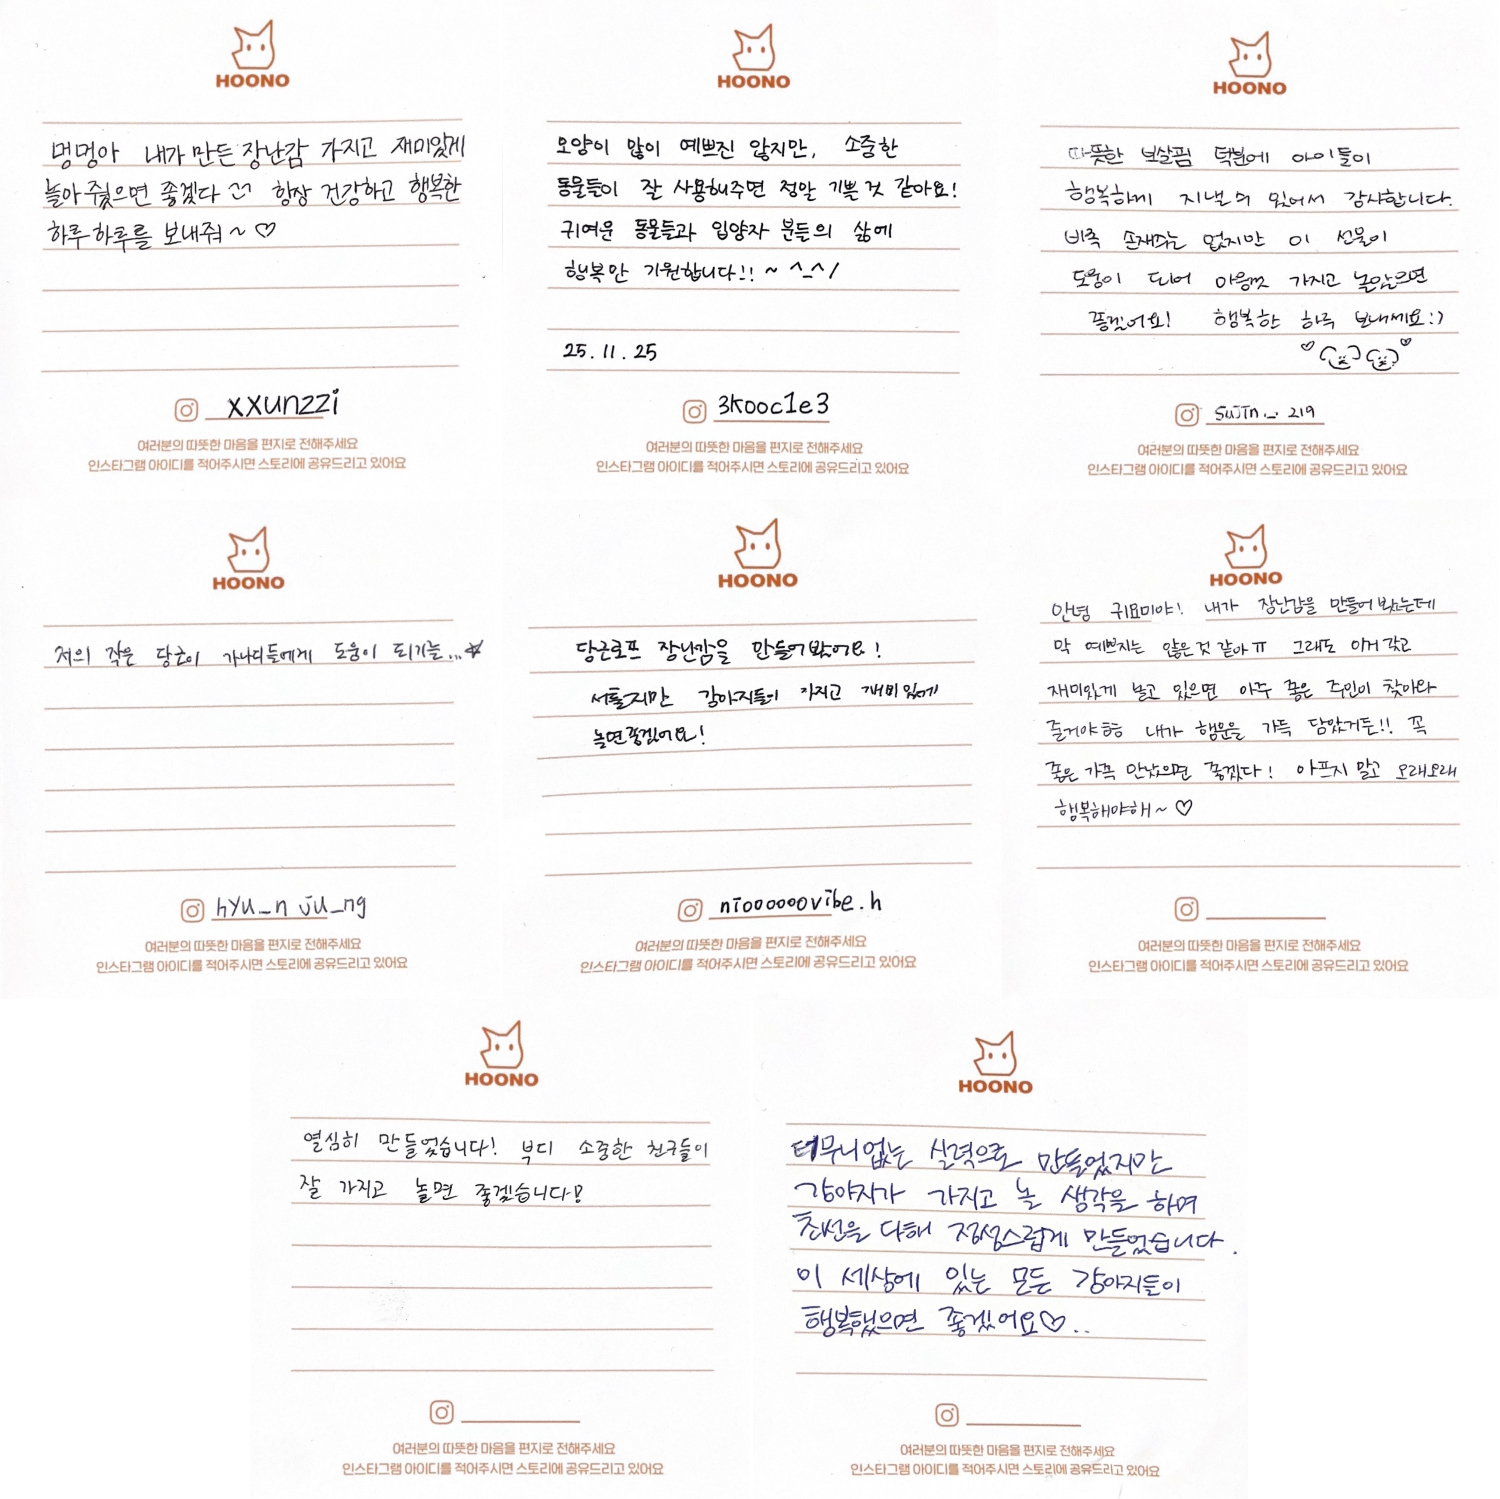 HOONO
멍멍아 내가 만든 장난감 가지고 재미있게
놀아줬으면 좋겠다 항상 건강하고 행복한
하루하루를 보내줘 ~ ♡
xxunzzi
여러분의 따뜻한 마음을 편지로 전해주세요
인스타그램 아이디를 적어주시면 스토리에 공유드리고 있어요
HOONO
모양이 많이 예쁘진 않지만, 소중한
동물들이 잘 사용해주면 정말 기쁠 것 같아요!
귀여운 동물들과 입양자 분들의 삶에
행복만 기원합니다!! ~ ^_^/
25.11.25
3kooc1e3
여러분의 따뜻한 마음을 편지로 전해주세요
인스타그램 아이디를 적어주시면 스토리에 공유드리고 있어요
HOONO
따뜻한 보살핌 덕분에 아이들이
행복하게 지낼 수 있어서 감사합니다.
비록 손재주는 없지만 이 선물이
도움이 되어 마음껏 가지고 놀았으면
좋겠어요! 행복한 하루 보내세요:)
♡ ♡
sujin._. 219
여러분의 따뜻한 마음을 편지로 전해주세요
인스타그램 아이디를 적어주시면 스토리에 공유드리고 있어요
HOONO
저의 작은 당근이 가나디들에게 도움이 되기를...☆
hyu_n ju_ng
여러분의 따뜻한 마음을 편지로 전해주세요
인스타그램 아이디를 적어주시면 스토리에 공유드리고 있어요
HOONO
당근로프 장난감을 만들어봤어요!
서툴지만 강아지들이 가지고 재미있게
놀면좋겠어요!
nioooooovibe.h
여러분의 따뜻한 마음을 편지로 전해주세요
인스타그램 아이디를 적어주시면 스토리에 공유드리고 있어요
HOONO
안녕 귀요미야! 내가 장난감을 만들어봤는데
막 예쁘지는 않은 것 같아ㅠ 그래도 이거 갖고
재미있게 놀고 있으면 아주 좋은 주인이 찾아와
줄거야ㅎㅎ 내가 행운을 가득 담았거든!! 꼭
좋은 가족 만났으면 좋겠다! 아프지 말고 오래오래
행복해야해~ ♡
여러분의 따뜻한 마음을 편지로 전해주세요
인스타그램 아이디를 적어주시면 스토리에 공유드리고 있어요
HOONO
열심히 만들었습니다! 부디 소중한 친구들이
잘 가지고 놀면 좋겠습니다!
여러분의 따뜻한 마음을 편지로 전해주세요
인스타그램 아이디를 적어주시면 스토리에 공유드리고 있어요
HOONO
터무니없는 실력으로 만들었지만
강아지가 가지고 놀 생각을 하며
최선을 다해 정성스럽게 만들었습니다.
이 세상에 있는 모든 강아지들이
행복했으면 좋겠어요♡..
여러분의 따뜻한 마음을 편지로 전해주세요
인스타그램 아이디를 적어주시면 스토리에 공유드리고 있어요